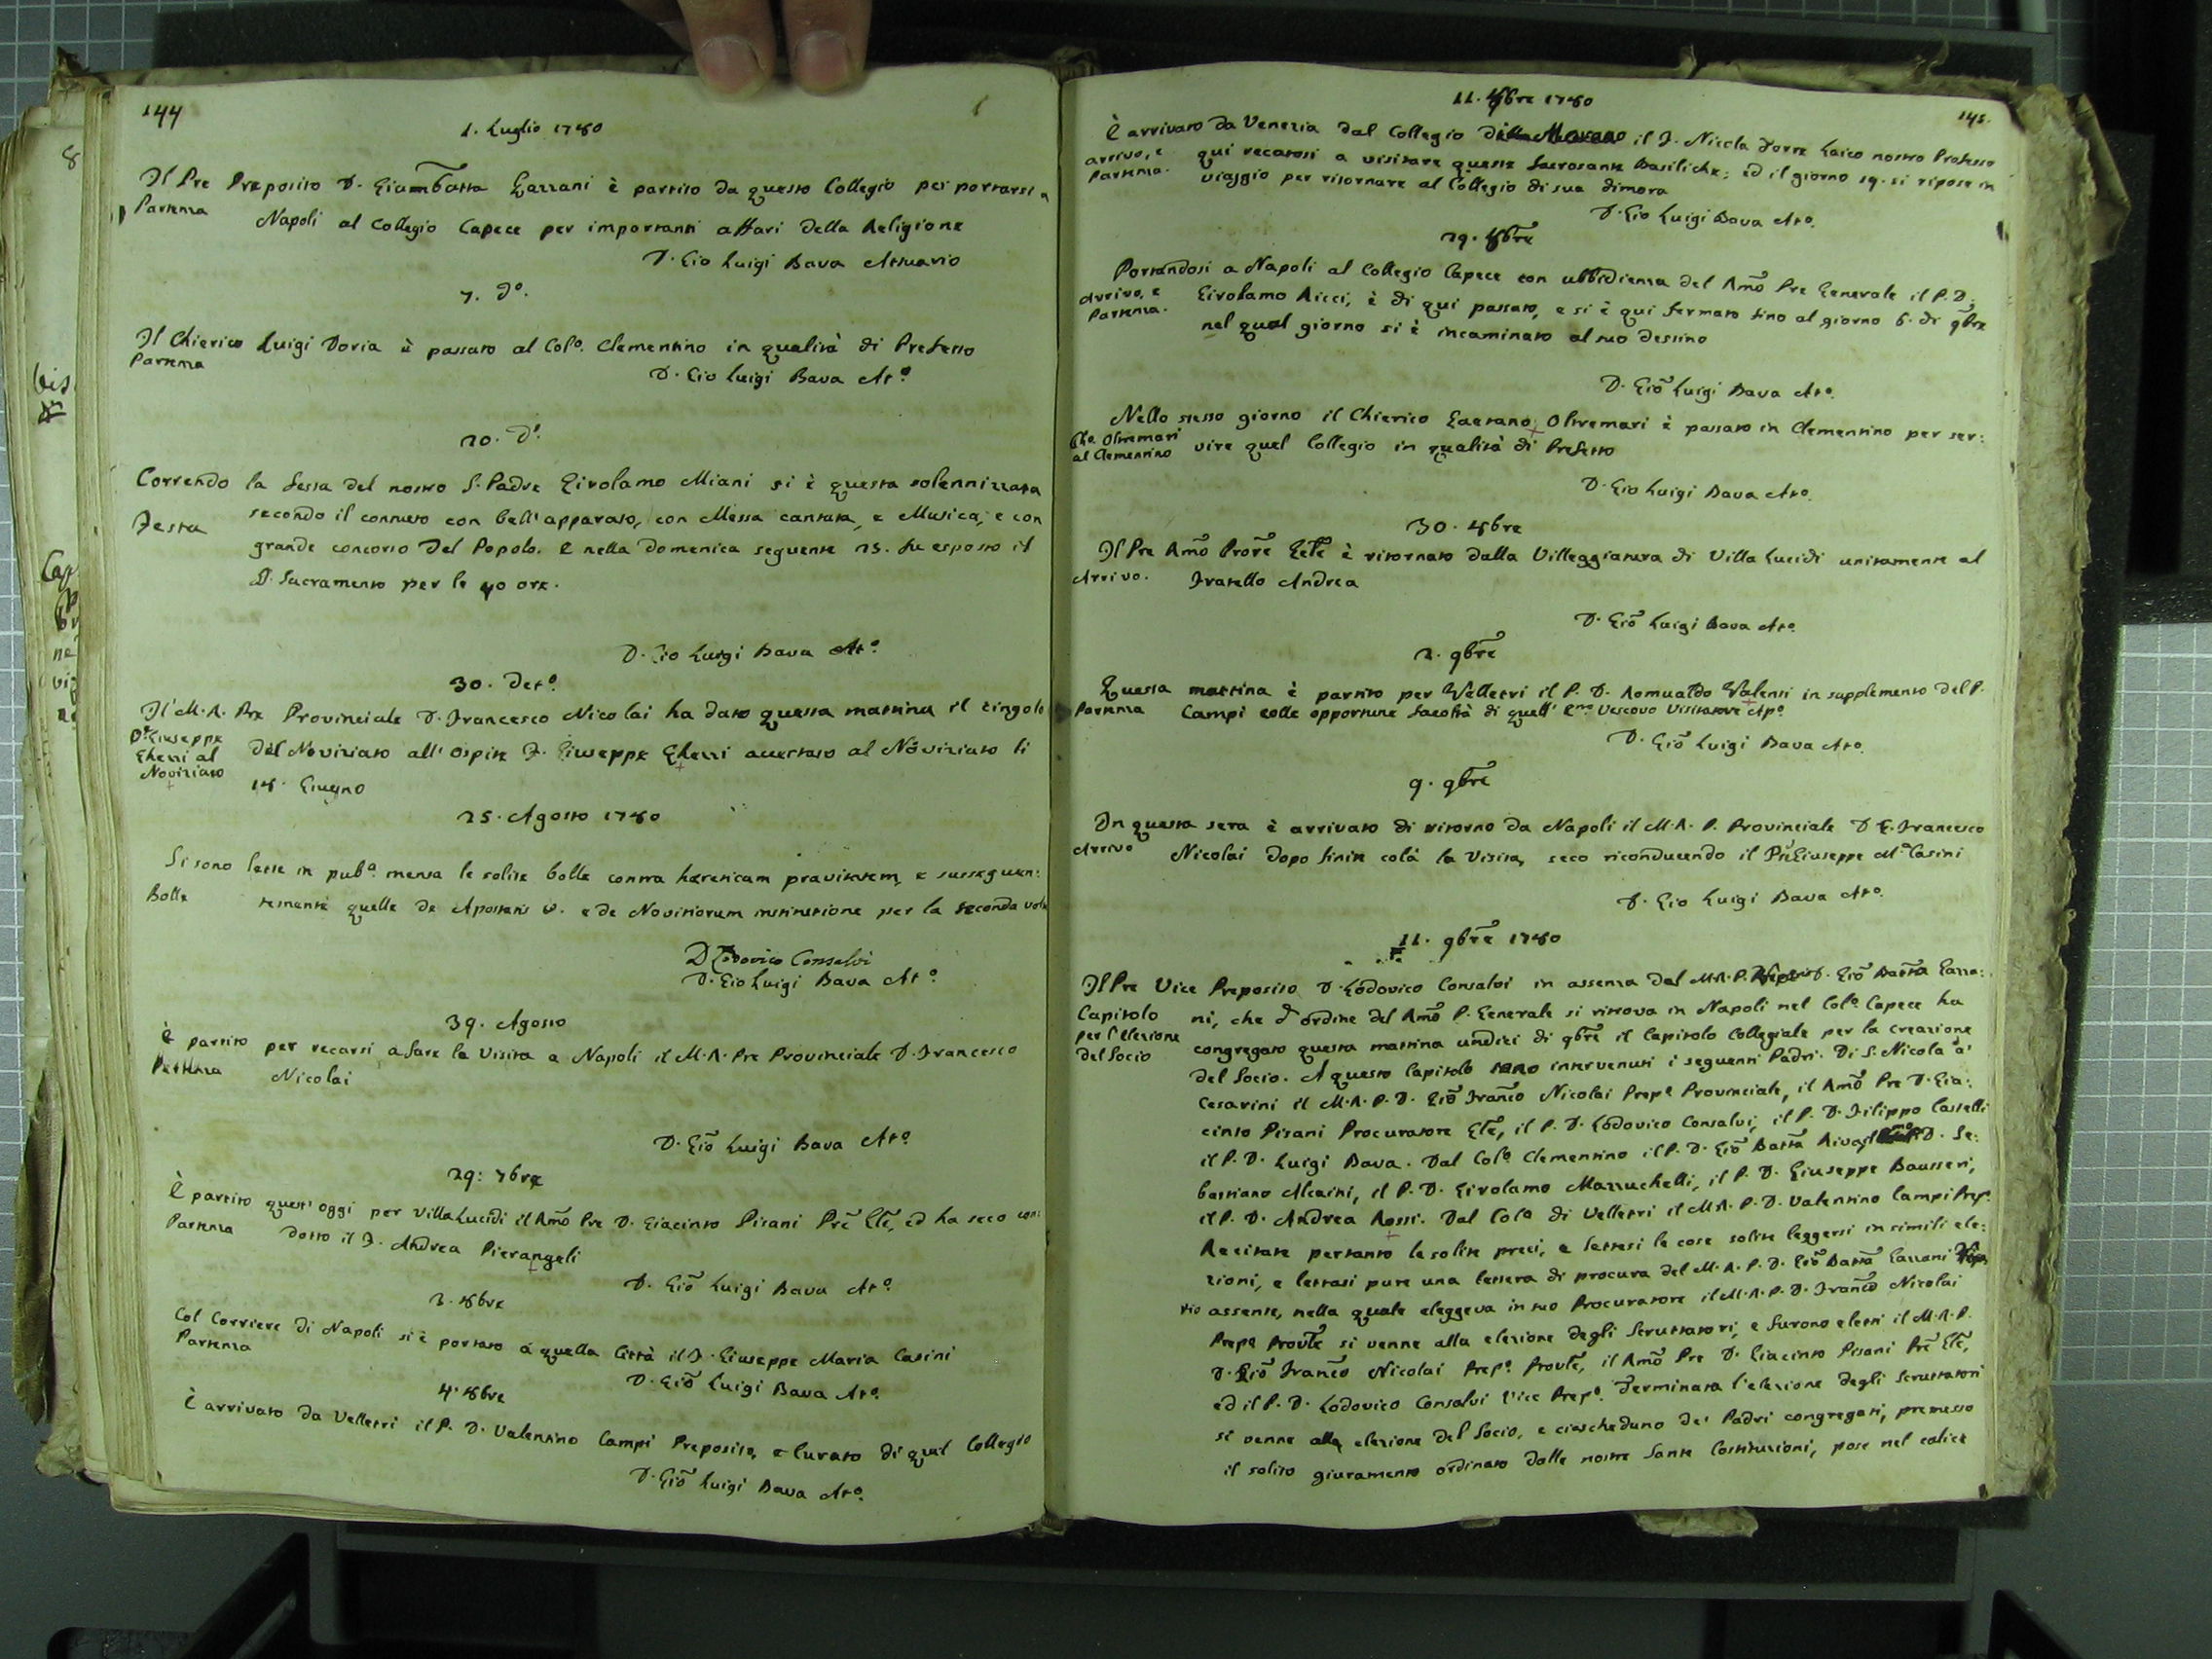 144
1. Luglio 1780
Il Pre Preposito D. Giambatta Gazzani è partito da questo Collegio per portarsi a
Partenza Napoli al Collegio Capece per importanti affari della Religione
D. Gio Luigi Bava Attuario
7. do.
Il Chierico Luigi Doria è passato al Colo. Clementino in qualità di Prefetto
Partenza
D. Gio Luigi Bava Atto.
20. do.
Correndo la festa del nostro S. Padre Girolamo Miani si è questa solennizzata
Festa secondo il consueto con bell'apparato, con Messa cantata, e Musica, e con
grande concorso del Popolo. E nella Domenica seguente 23. fu esposto il
S. Sacramento per le 40 ore.
D. Gio Luigi Bava Atto.
30. detto.
Il M. R. Pre Provinciale D. Francesco Nicolai ha dato questa mattina il cingolo
Dn. Giuseppe Gherzi al Noviziato
del Noviziato all'ospite F. Giuseppe Gherzi accettato al Noviziato li
18. Giugno
25. Agosto 1780
Si sono lette in puba. mensa le solite bolle contra haereticam pravitatem, e susseguen:
Bolle temente quelle de Apostatis &. e de Novitiorum institutione per la seconda volta
D. Lodovico Consalvi
D. Gio Luigi Bava Atto.
39. Agosto
È partito per recarsi a fare la Visita a Napoli il M. R. Pre Provinciale D. Francesco
Partenza Nicolai
D. Gio Luigi Bava Atto.
29: 7bre
È partito quest'oggi per Villa Lucidi il Rmo Pre D. Giacinto Pisani Pre Gle, ed ha seco con:
Partenza dotto il F. Andrea Pierangeli
D. Gio Luigi Bava Atto.
3. 8bre
Col Corriere di Napoli si è portato a quella Città il F. Giuseppe Maria Casini
Partenza
D. Gio Luigi Bava Atto.
4. 8bre
È arrivato da Velletri il P. D. Valentino Campi Preposito, e Curato di quel Collegio
D. Gio Luigi Bava Atto.
145.
11. 8bre 1780
È arrivato da Venezia dal Collegio il F. Nicola Torre Laico nostro Professo
arrivo, e Partenza. qui recatosi a visitare queste Sacrosante Basiliche; ed il giorno 19. si ripose in
viaggio per ritornare al Collegio di sua dimora
D. Gio Luigi Bava Atto.
29. 8bre
Portandosi a Napoli al Collegio Capece con ubbidienza del Rmo Pre Generale il P. D.
Arrivo, e Partenza. Girolamo Ricci, è di qui passato, e si è qui fermato sino al giorno 6. di 9bre
nel qual giorno si è incaminato al suo destino
D. Gio Luigi Bava Atto.
Nello stesso giorno il Chierico Gaetano Oltremari è passato in Clementino per ser:
Cho. Oltremari al Clementino vire quel Collegio in qualità di Prefetto
D. Gio Luigi Bava Atto.
30. 8bre
Il Pre Rmo Prore Gele è ritornato dalla Villeggiatura di Villa Lucidi unitamente al
Arrivo. Fratello Andrea
D. Gio Luigi Bava Atto.
2. 9bre
Questa mattina è partito per Velletri il P. D. Romualdo Valenti in supplemento del P.
Partenza Campi colle opportune facoltà di quell' Emo Vescovo Visitatore Apo.
D. Gio Luigi Bava Atto.
9. 9bre
In questa sera è arrivato di ritorno da Napoli il M. R. P. Provinciale D. G. Francesco
Arrivo Nicolai dopo finita colà la Visita, seco riconducendo il Giuseppe Ma. Casini
D. Gio Luigi Bava Atto.
11. 9bre 1780
Il Pre Vice Preposito D. Lodovico Consalvi in assenza del M. R. P. D. Gio Batta Gazza:
Capitolo per l'elezione del Socio
ni, che d'ordine del Rmo P. Generale si ritrova in Napoli nel Colo. Capece ha
congregato questa mattina undici di 9bre il Capitolo Collegiale per la creazione
del Socio. A questo Capitolo sono intervenuti i seguenti Padri. Di S. Nicola a'
Cesarini il M. R. P. D. Gio Franco Nicolai Prepo Provinciale, il Rmo Pre D. Gia:
cinto Pisani Procuratore Gle, il P. D. Lodovico Consalvi, il P. D. Filippo Castelli
il P. D. Luigi Bava. Dal Colo. Clementino il P. D. Gio Batta Riva, D. Se:
bastiano Alcaini, il P. D. Girolamo Mazzuchelli, il P. D. Giuseppe Bausseri,
il P. D. Andrea Rossi. Dal Colo. di Velletri il M. R. P. D. Valentino Campi Prepo.
Recitate pertanto le solite preci, e lettesi le cose solite leggersi in simili ele:
zioni, e lettasi pure una lettera di procura del M. R. P. D. Gio Batta Gazzani
assente, nella quale eleggeva in suo Procuratore il M. R. P. D. Franco Nicolai
Prepo Provle si venne alla elezione degli Scrutatori, e furono eletti il M. R. P.
D. Gio Franco Nicolai Prepo. Provle, il Rmo Pre D. Giacinto Pisani Pre Gle,
ed il P. D. Lodovico Consalvi Vice Prepo. Terminata l'elezione degli Scrutatori
si venne alla elezione del Socio, e ciascheduno de' Padri congregati, premesso
il solito giuramento ordinato dalle nostre Sante Costituzioni, pose nel calice